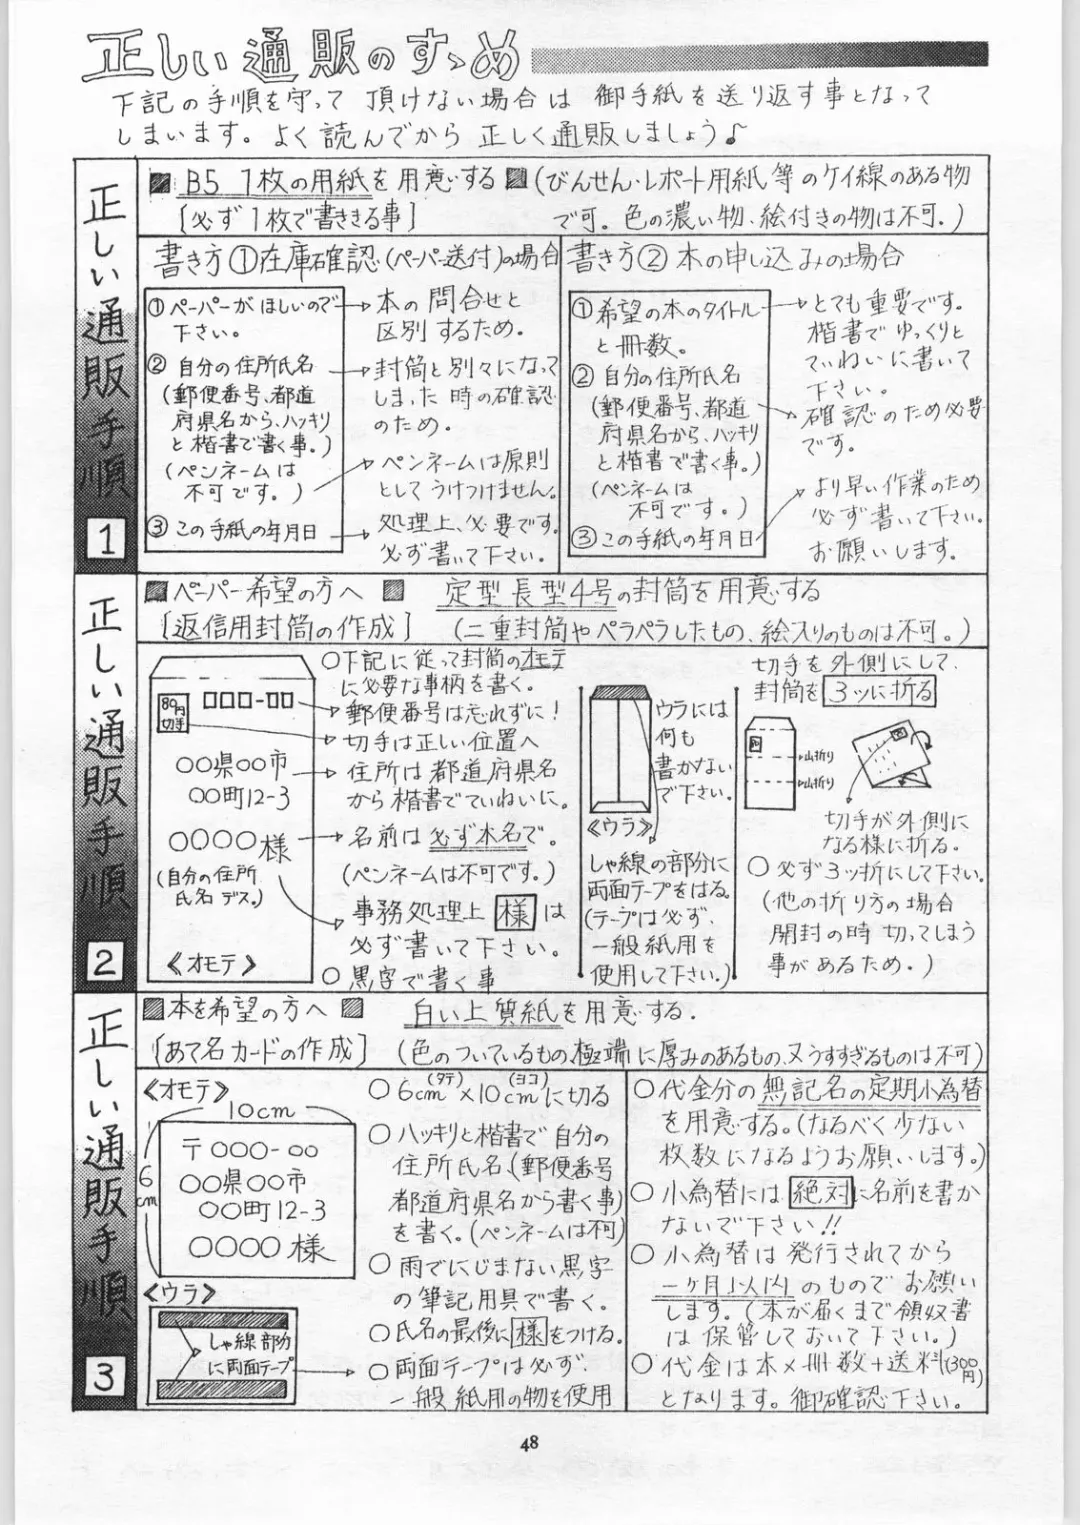 正しい通販のすゝめ
下記の手順を守って頂けない場合は御手紙を送り返す事となって
しまいます。よく読んでから正しく通販しましょう♪
正しい通販手順 1
B5 1枚の用紙を用意する (びんせん・レポート用紙等のケイ線のある物
[必ず1枚で書ききる事] で可。色の濃い物、絵付きの物は不可。)
書き方①在庫確認(ペーパー送付)の場合
①ペーパーがほしいので
下さい。
②自分の住所氏名
(郵便番号、都道
府県名から、ハッキリ
と楷書で書く事。)
(ペンネームは
不可です。)
③この手紙の年月日
本の問合せと
区別するため。
封筒と別々になって
しまった時の確認
のため。
ペンネームは原則
としてうけつけません。
処理上、必要です。
必ず書いて下さい。
書き方②本の申し込みの場合
①希望の本のタイトル
と冊数。
②自分の住所氏名
(郵便番号、都道
府県名から、ハッキリ
と楷書で書く事。)
(ペンネームは
不可です。)
③この手紙の年月日
とても重要です。
楷書でゆっくりと
ていねいに書いて
下さい。
確認のため必要
です。
より早い作業のため
必ず書いて下さい。
お願いします。
正しい通販手順 2
ペーパー希望の方へ 定型長型4号の封筒を用意する
[返信用封筒の作成] (二重封筒やペラペラしたもの、絵入りのものは不可。)
80円
切手
□□□-□□
○○県○○市
○○町12-3
○○○○様
(自分の住所
氏名デス。)
《オモテ》
○下記に従って封筒のオモテ
に必要な事柄を書く。
郵便番号は忘れずに!
切手は正しい位置へ
住所は都道府県名
から楷書でていねいに。
名前は必ず本名で。
(ペンネームは不可です。)
事務処理上様は
必ず書いて下さい。
○黒字で書く事
ウラには
何も
書かない
で下さい。
《ウラ》
しゃ線の部分に
両面テープをはる。
(テープは必ず、
一般紙用を
使用して下さい。)
切手を外側にして、
封筒を3ツに折る
山折り
山折り
切手が外側に
なる様に折る。
○必ず3ッ折にして下さい。
(他の折り方の場合
開封の時切ってしまう
事があるため。)
正しい通販手順 3
本を希望の方へ 白い上質紙を用意する.
[あて名カードの作成] (色のついているもの、極端に厚みのあるもの、又うすすぎるものは不可)
《オモテ》
10cm
6cm
〒○○○-○○
○○県○○市
○○町12-3
○○○○様
《ウラ》
しゃ線部分
に両面テープ
○6cm(タテ)×10cm(ヨコ)に切る
○ハッキリと楷書で自分の
住所氏名(郵便番号
都道府県名から書く事)
を書く。(ペンネームは不可)
○雨でにじまない黒字
の筆記用具で書く。
○氏名の最後に様をつける。
○両面テープは必ず、
一般紙用の物を使用
○代金分の無記名の定期小為替
を用意する。(なるべく少ない
枚数になるようお願いします。)
○小為替には絶対に名前を書か
ないで下さい!!
○小為替は発行されてから
一ヶ月以内のものでお願い
します。(本が届くまで領収書
は保管しておいて下さい。)
○代金は本×冊数+送料(300円)
となります。御確認下さい。
48